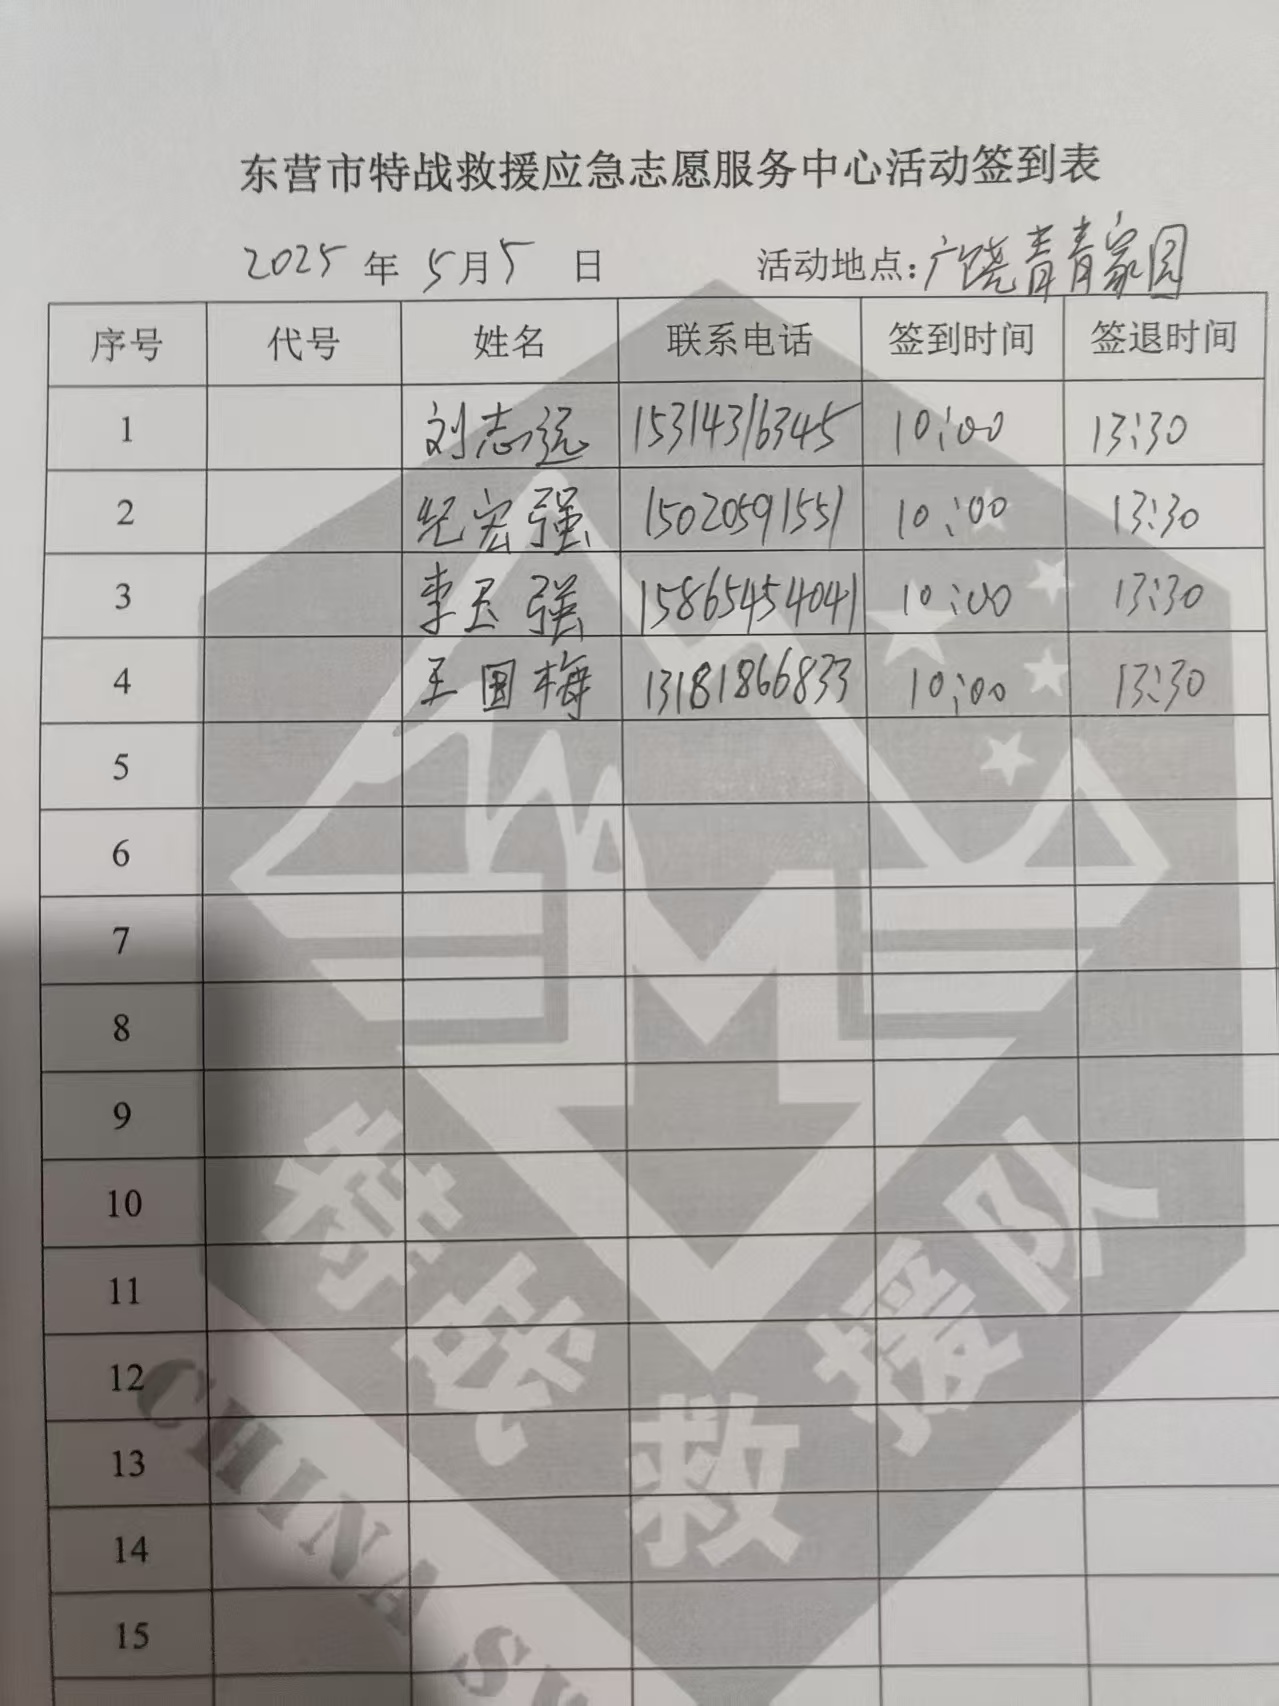 东营市特战救援应急志愿服务中心活动签到表
2025 年 5月5 日 活动地点:广饶青青家园
序号 代号 姓名 联系电话 签到时间 签退时间
1 刘志远 15314316345 10:00 13:30
2 纪宏强 15020591551 10:00 13:30
3 李玉强 15865454041 10:00 13:30
4 王国梅 13181866833 10:00 13:30
5
6
7
8
9
10
11
12
13
14
15
特战救援队
CHINA